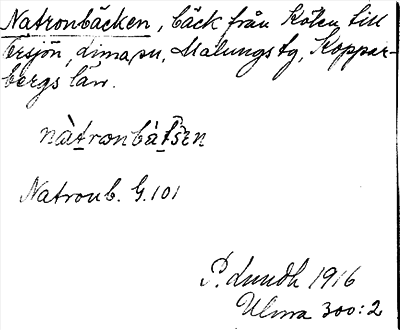 Natronbäcken, bäck från Köten till
Ersjön, Lima sn, Malungs tg, Koppar-
bergs län.
nàtronbàtsen
Natronb. G. 101
P. Lundh 1916
Ulma 300:2